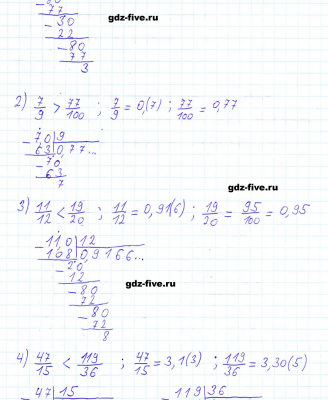 80
77
gdz-five.ru
- 30
22
- 80
77
3
2) 7/9 > 77/100 ; 7/9 = 0,(7) ; 77/100 = 0,77
- 70 | 9
63 | 0,77...
- 70
63
7
gdz-five.ru
3) 11/12 < 19/20 ; 11/12 = 0,91(6) ; 19/20 = 95/100 = 0,95
- 110 | 12
108 | 0,9166...
- 20
12
- 80
72
- 80
72
8
gdz-five.ru
4) 47/15 < 119/36 ; 47/15 = 3,1(3) ; 119/36 = 3,30(5)
- 47 | 15
- 119 | 36